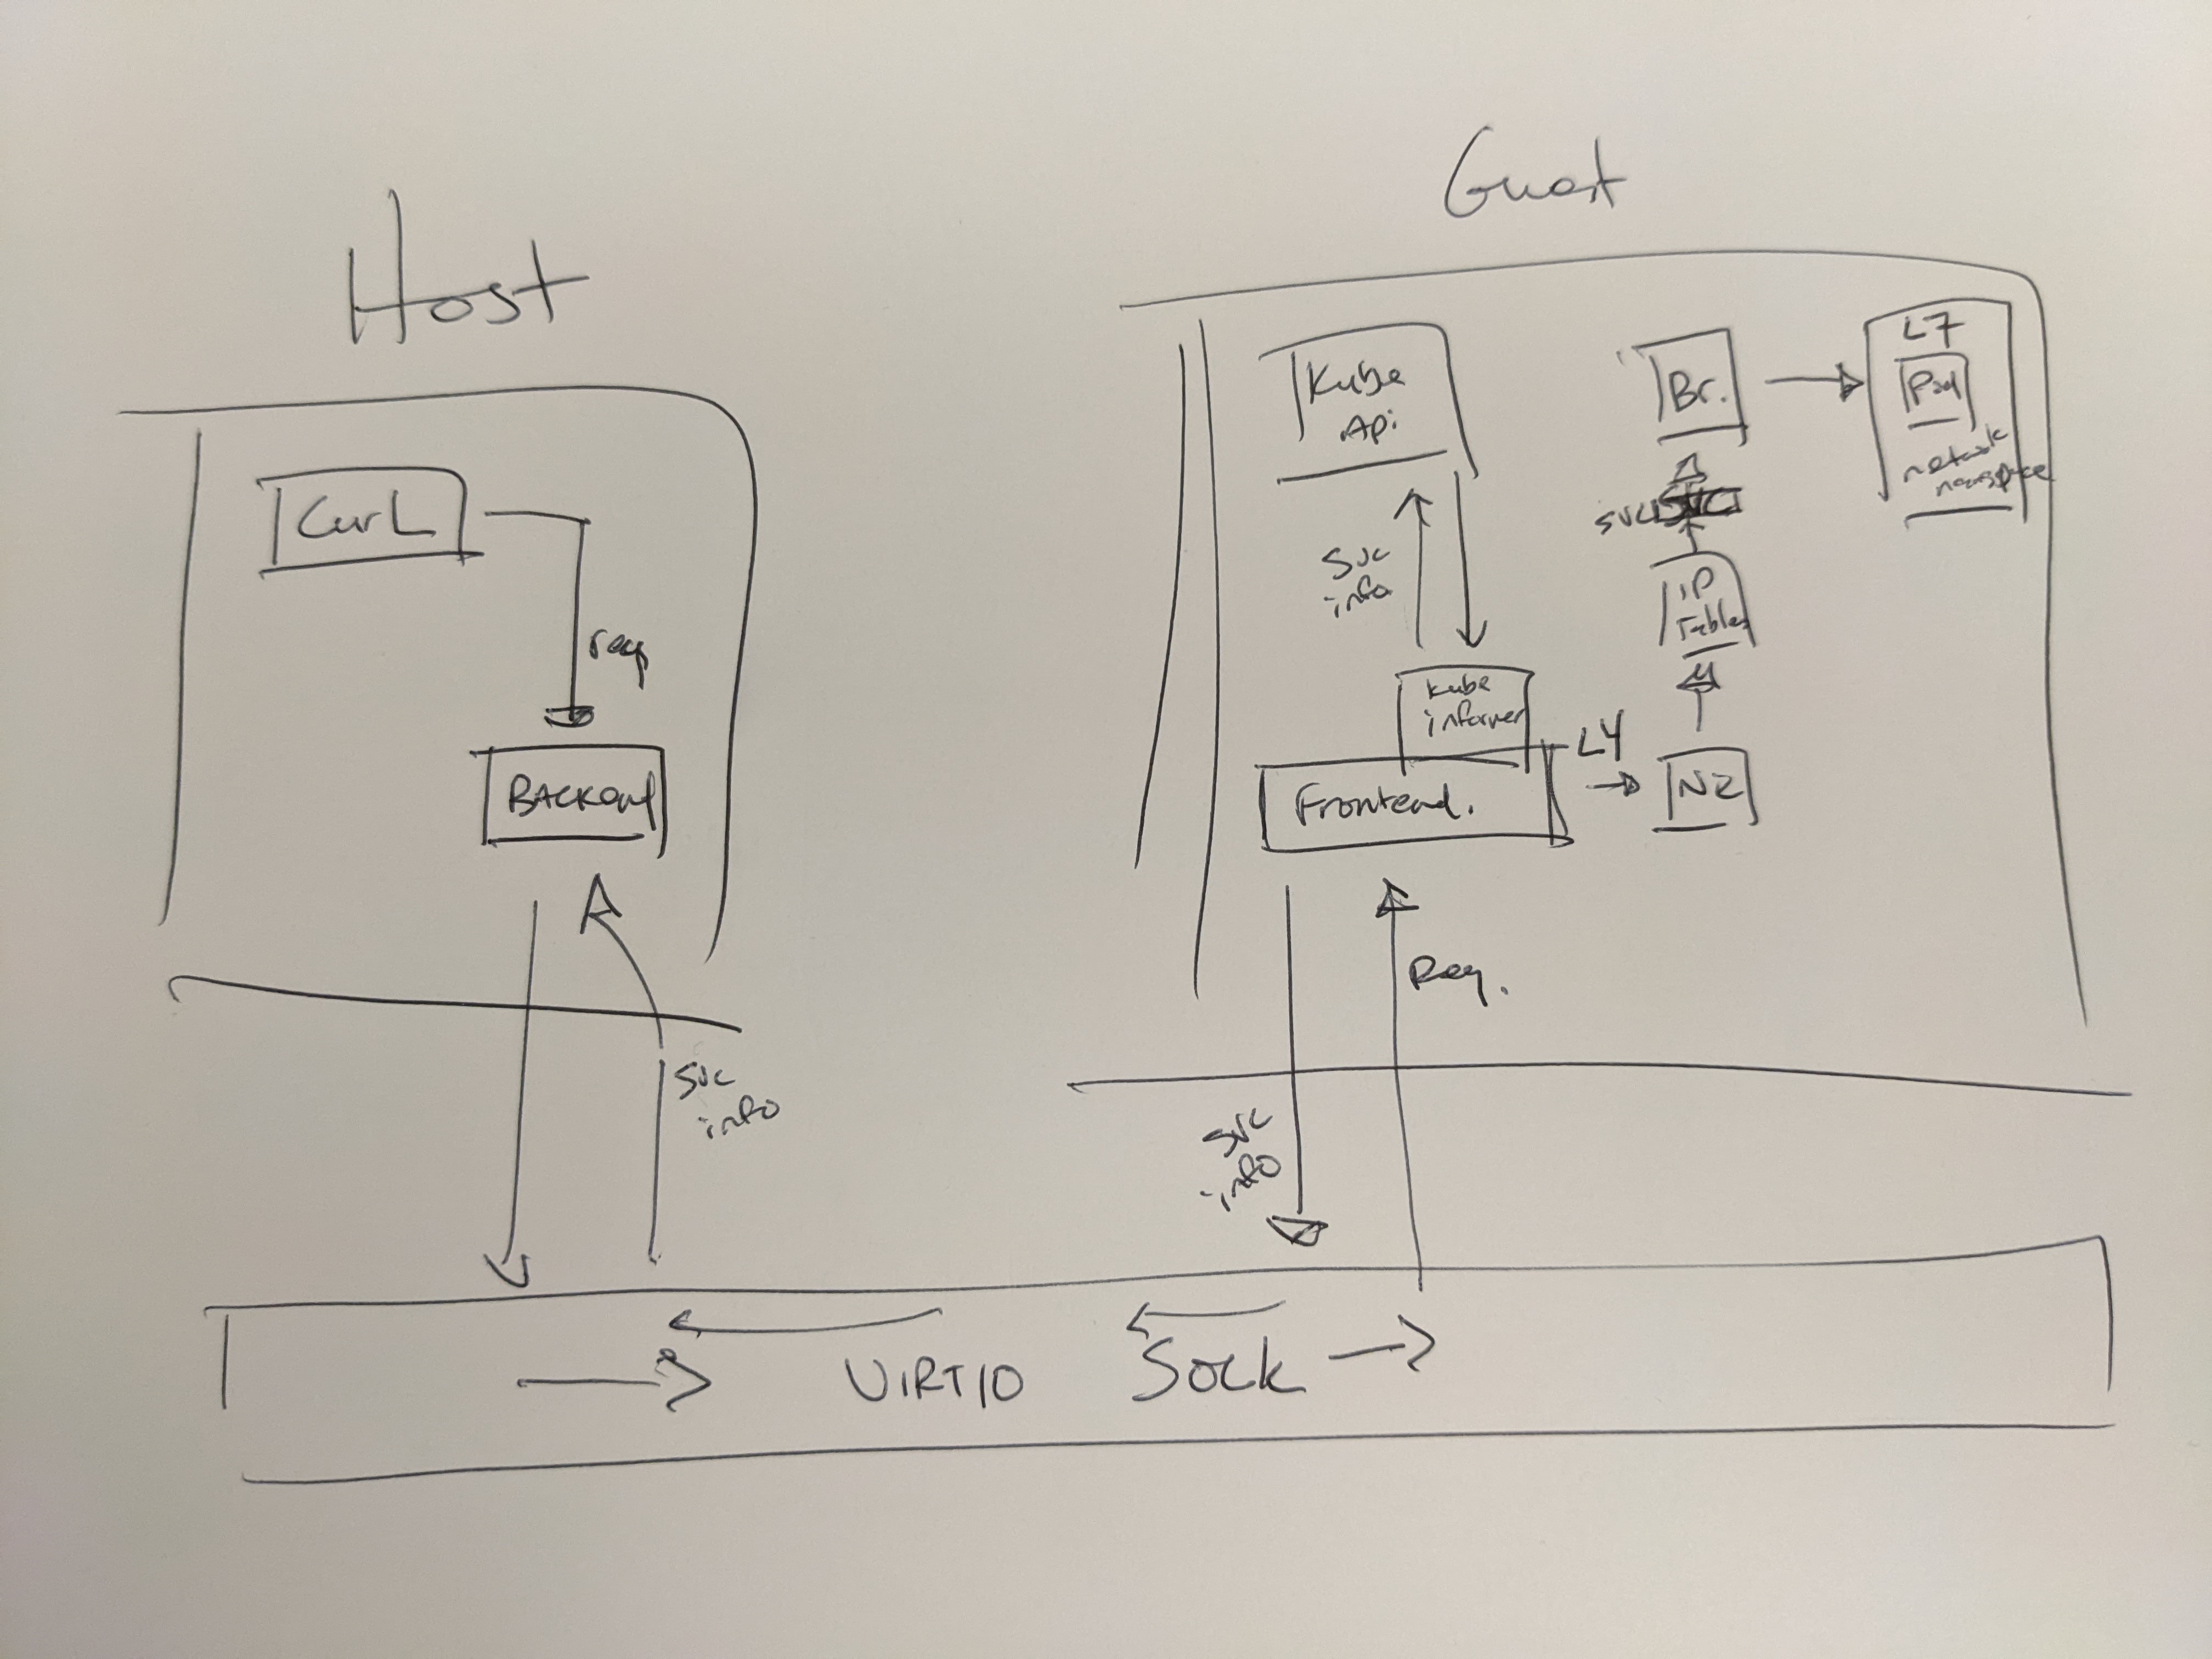 Host
Guest
CurL
req
BACKend
svc
info
Kube
Api
svc
info
Kube
informer
Frontend.
L4
NZ
IP
Tables
svc
Br.
L7
Pod
network
namespace
svc
info
Req.
VIRTIO Sock